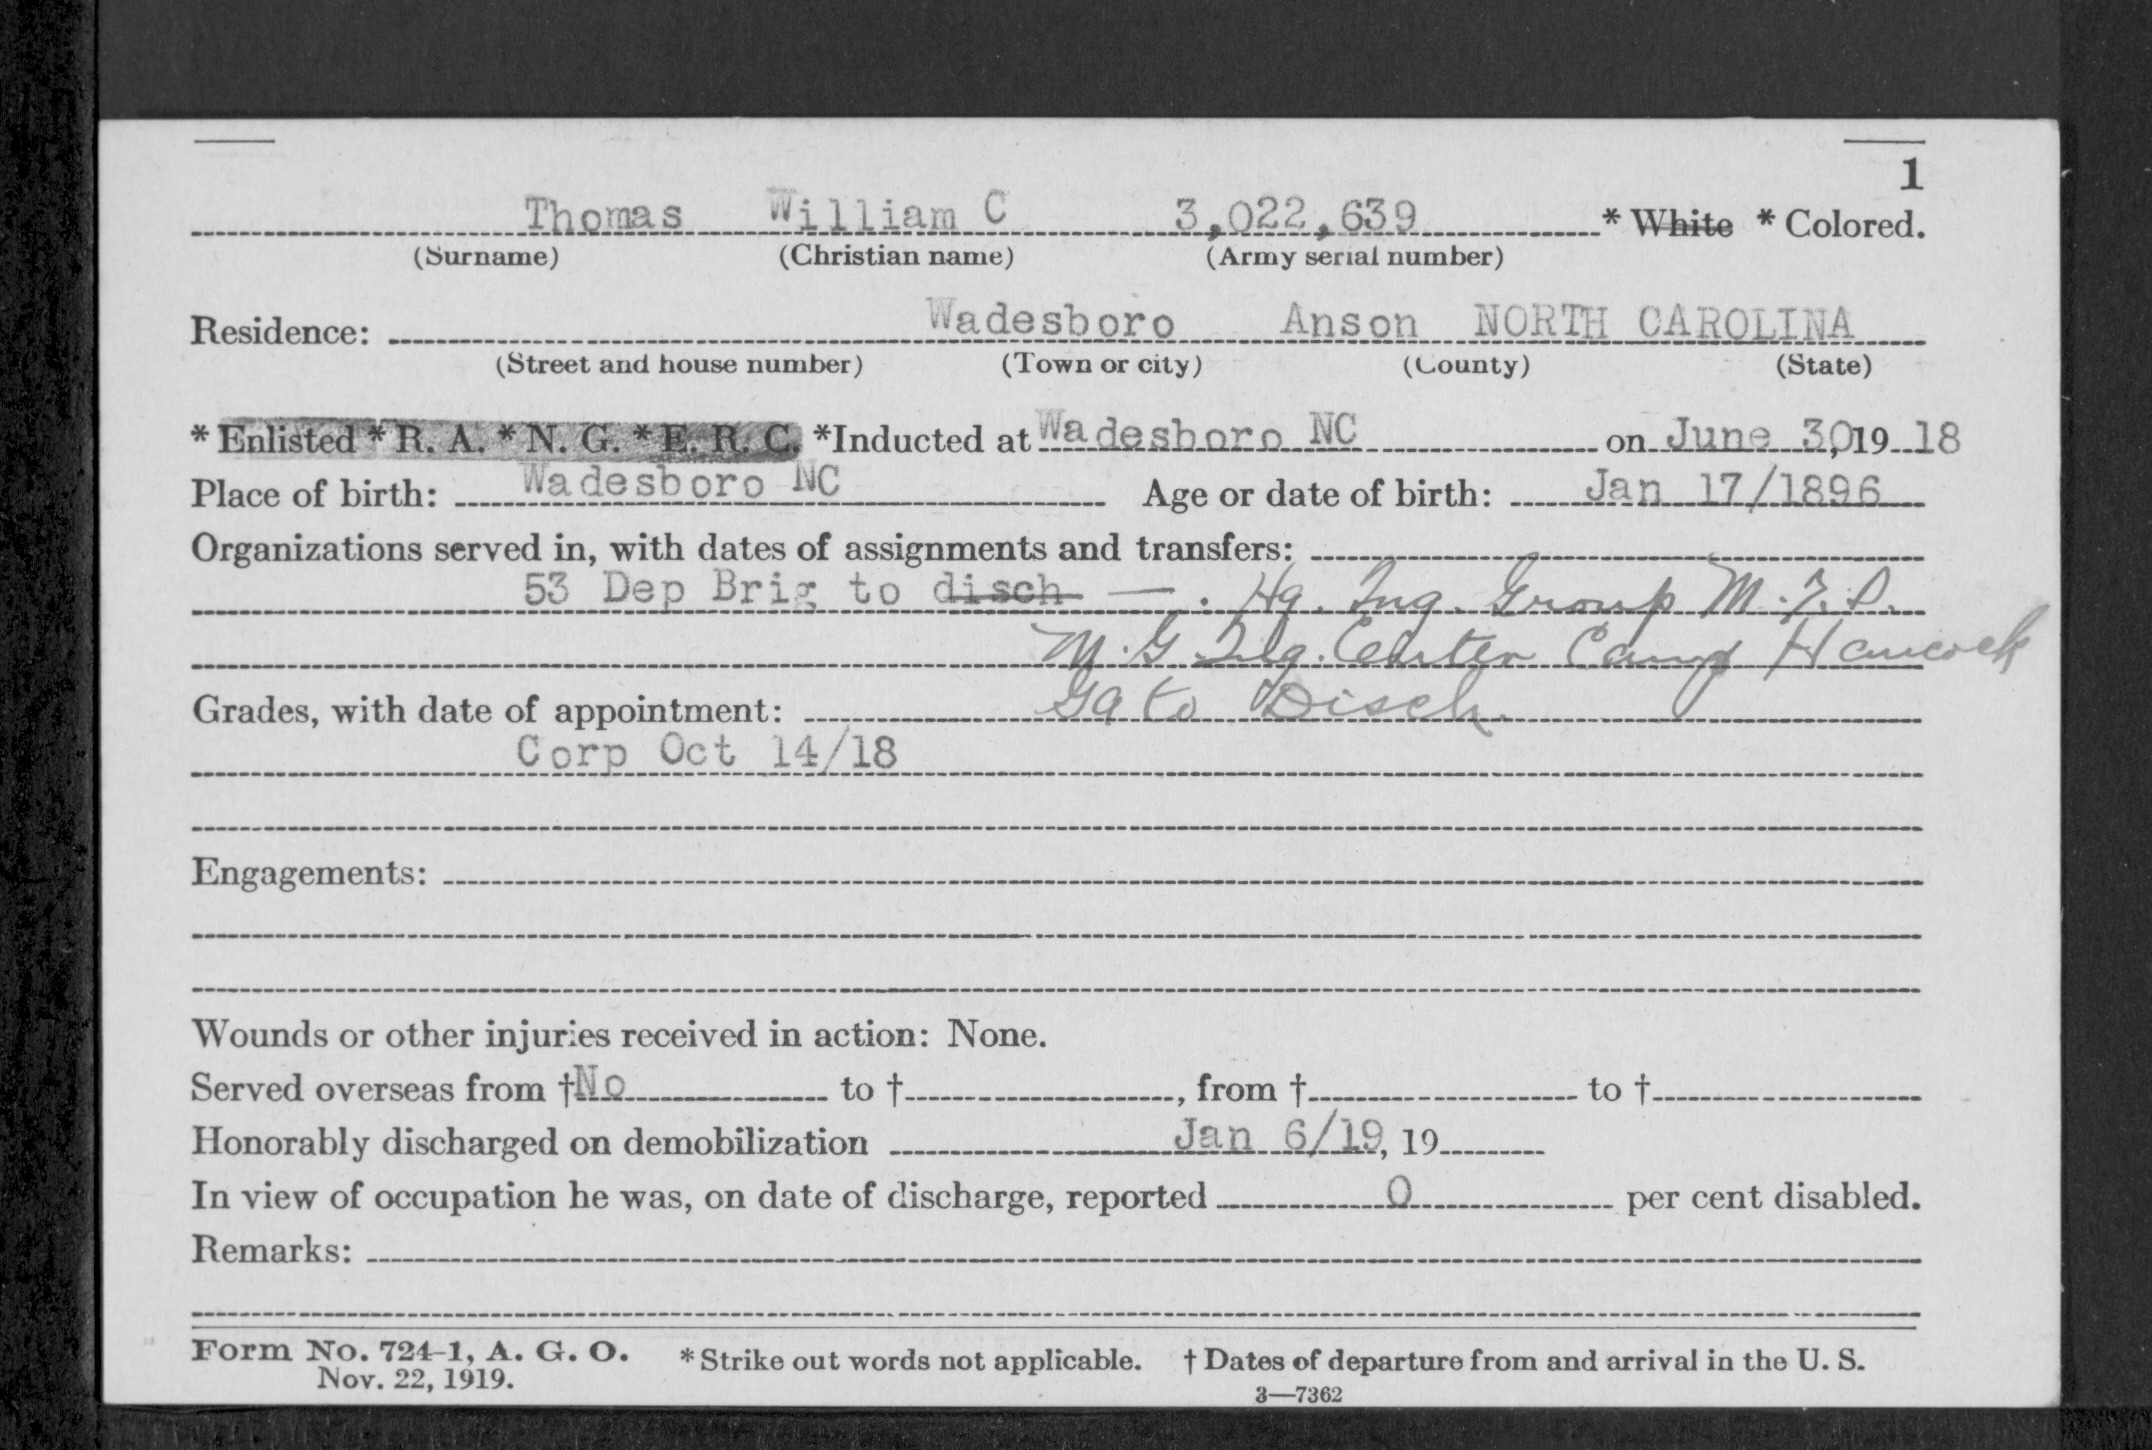 1
Thomas William C 3,022,639 * White * Colored.
(Surname) (Christian name) (Army serial number)
Residence: Wadesboro Anson NORTH CAROLINA
(Street and house number) (Town or city) (County) (State)
* Enlisted * R. A. * N. G. * E. R. C. *Inducted at Wadesboro NC on June 30, 19 18
Place of birth: Wadesboro NC Age or date of birth: Jan 17/1896
Organizations served in, with dates of assignments and transfers:
53 Dep Brig to disch — . Hq. Tng. Group M.T.D.
M.G. Tng. Center Camp Hancock
Grades, with date of appointment: Ga to Disch.
Corp Oct 14/18
Engagements:
Wounds or other injuries received in action: None.
Served overseas from †No to †, from † to †
Honorably discharged on demobilization Jan 6/19, 19
In view of occupation he was, on date of discharge, reported 0 per cent disabled.
Remarks:
Form No. 724-1, A. G. O. *Strike out words not applicable. † Dates of departure from and arrival in the U. S.
Nov. 22, 1919.
3—7362